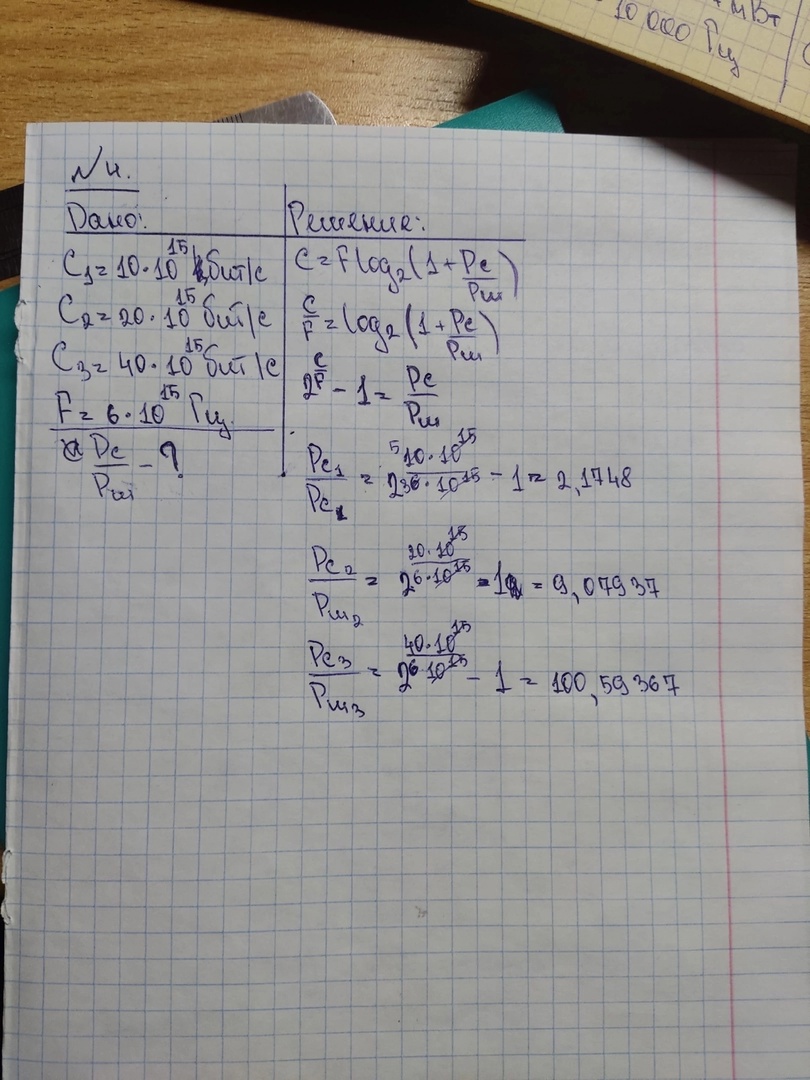 мВт
10 000 Гц
N4.
Дано:
C₁ = 10·10¹⁵ бит/с
C₂ = 20·10¹⁵ бит/с
C₃ = 40·10¹⁵ бит/с
F = 6·10¹⁵ Гц
Pc/Pш - ?
Решение:
C = Flog₂(1 + Pc/Pш)
C/F = log₂(1 + Pc/Pш)
2^(C/F) - 1 = Pc/Pш
Pc₁/Pc₁ = 2^(5 10·10¹⁵/3 6·10¹⁵) - 1 = 2,1748
Pc₂/Pш₂ = 2^(20·10¹⁵/6·10¹⁵) - 1 = 9,07937
Pc₃/Pш₃ = 2^(40·10¹⁵/6·10¹⁵) - 1 = 100,59367